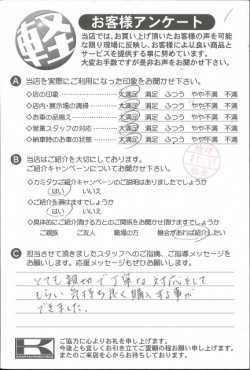 軽
お客様アンケート
当店では、お買い上げ頂いたお客様の声を可能
な限り現場に反映し、お客様により良い商品と
サービスを提供する事に努めています。
大変お手数ですが是非お声をお聞かせ下さい。
A 当店を実際にご利用になった印象をお聞かせ下さい。
◇店の印象 大満足 満足 ふつう やや不満 不満
◇店内・展示場の清掃 大満足 満足 ふつう やや不満 不満
◇お車の品揃え 大満足 満足 ふつう やや不満 不満
◇営業スタッフの対応 大満足 満足 ふつう やや不満 不満
◇納車時のお車の状態 大満足 満足 ふつう やや不満 不満
B 当店はご紹介を大切にしております。
ご紹介キャンペーンについてお聞かせ下さい。
◇カミタケご紹介キャンペーンのご説明はありましたでしょうか
はい いいえ
◇ご紹介を頂けますでしょうか
はい いいえ
◇具体的にご紹介頂ける方とのご関係をお聞かせ頂けますでしょうか
ご親族 ご友人 職場の方 機会があれば紹介したい
C 担当させて頂きましたスタッフへのご指摘、ご指導メッセージを
お願いします。応援メッセージもぜひお願いします。
とても親切で丁寧な対応をして
もらい気持ち良く購入する事が
できました。
K
ご協力に心よりお礼を申し上げます。
今後とも宜しくお引き立てご愛顧の程お願い申し上げます。
またのご来店を心からお待ちしております。